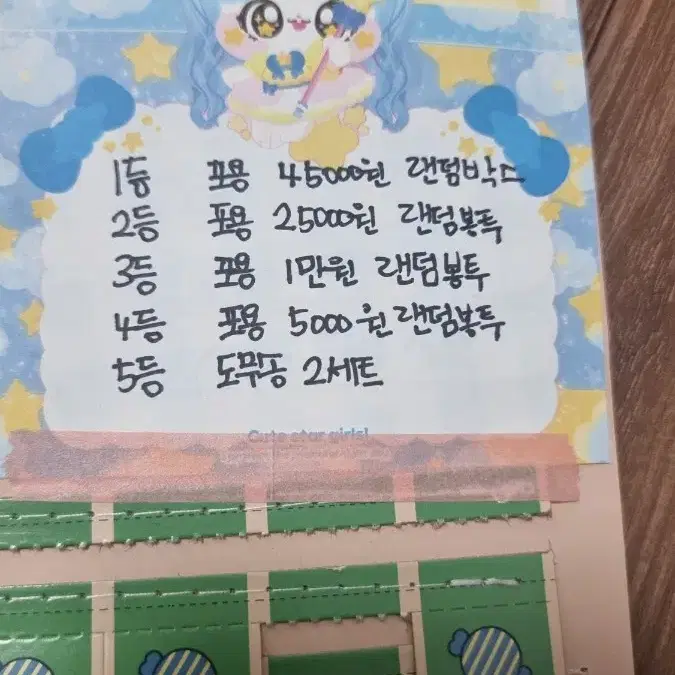 1등 포용 45000원 랜덤박스
2등 포용 25000원 랜덤봉투
3등 포용 1만원 랜덤봉투
4등 포용 5000원 랜덤봉투
5등 도무송 2세트
Cute star girls!